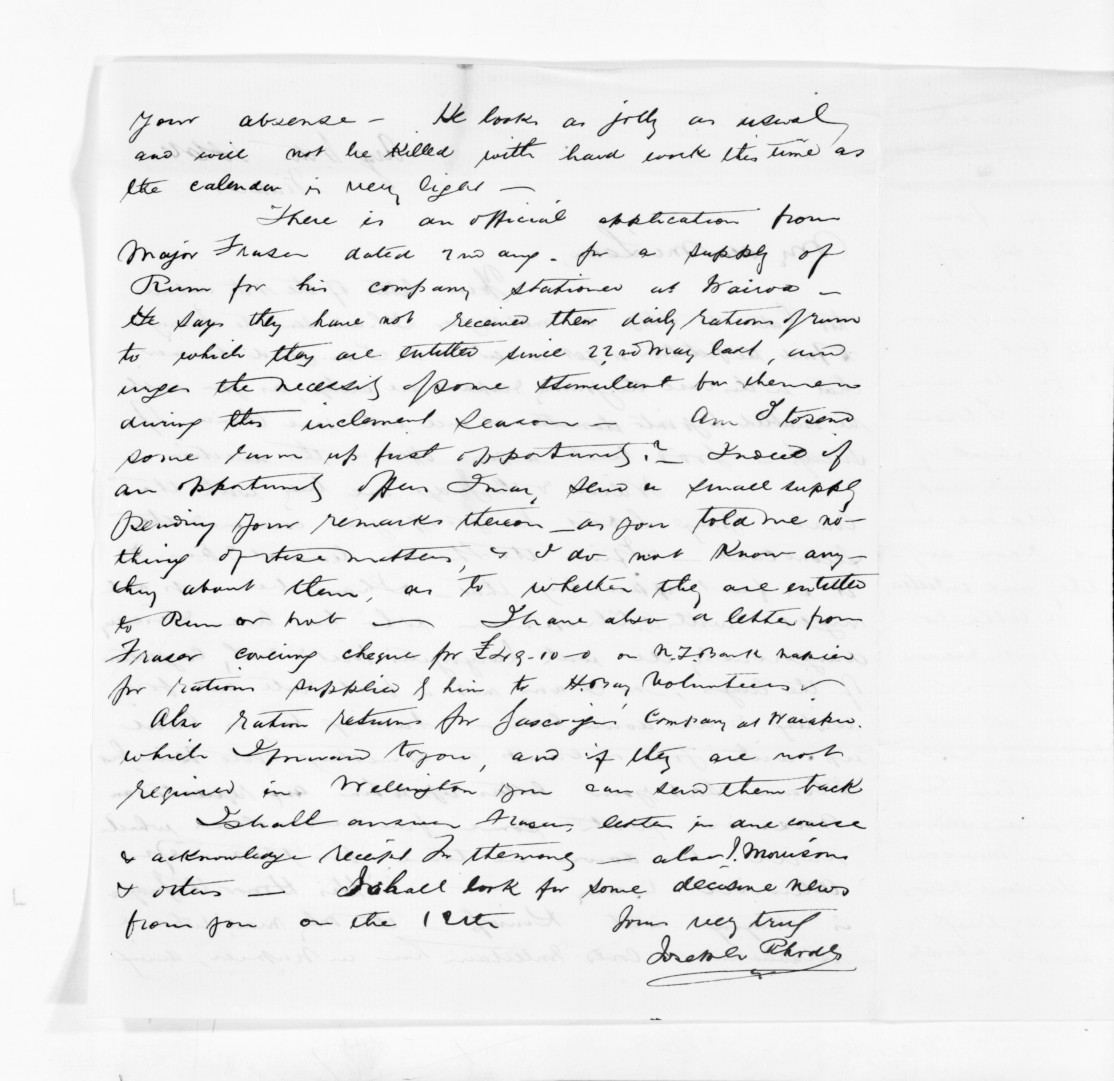 your absense – He looks as jolly as usual,
and will not be killed with hard work this time as
the calendar is very light –
There is an official application from
Major Fraser dated 2nd Aug. for a supply of
Rum for his company stationed at Wairoa –
He says they have not received their daily rations of rum
to which they are entitled since 22nd May last, and
urges the necessity of some stimulant for the men
during this inclement season – Am I to send
some rum up first opportunity? – Indeed if
an opportunity offers I may send a small supply
pending your remarks thereon – as you told me no-
thing of these matters, & I do not know any-
thing about them, as to whether they are entitled
to Rum or not – I have also a letter from
Fraser covering cheque for £49-10-0 on N.Z. Bank Napier
for rations supplied by him to H. Bay Volunteers –
Also ration returns for Gascoigne's Company at Wairoa.
which I forward to you, and if they are not
required in Wellington you can send them back
I shall answer Fraser's letter in due course
& acknowledge receipt for the money also J. Morrisons
& others – I shall look for some decisive news
from you on the 12th Yours very truly
Joseph Rhodes